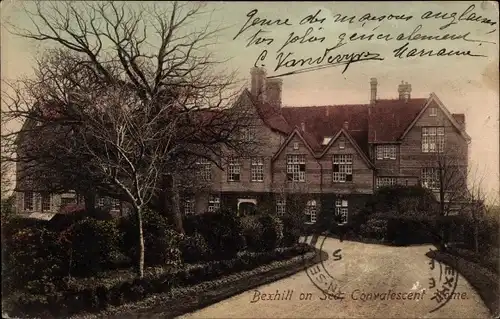 Genre des maisons anglaises,
très jolies généralement
C. Vandevyver Marraine
Bexhill on Sea, Convalescent Home.
BEX
5
FE